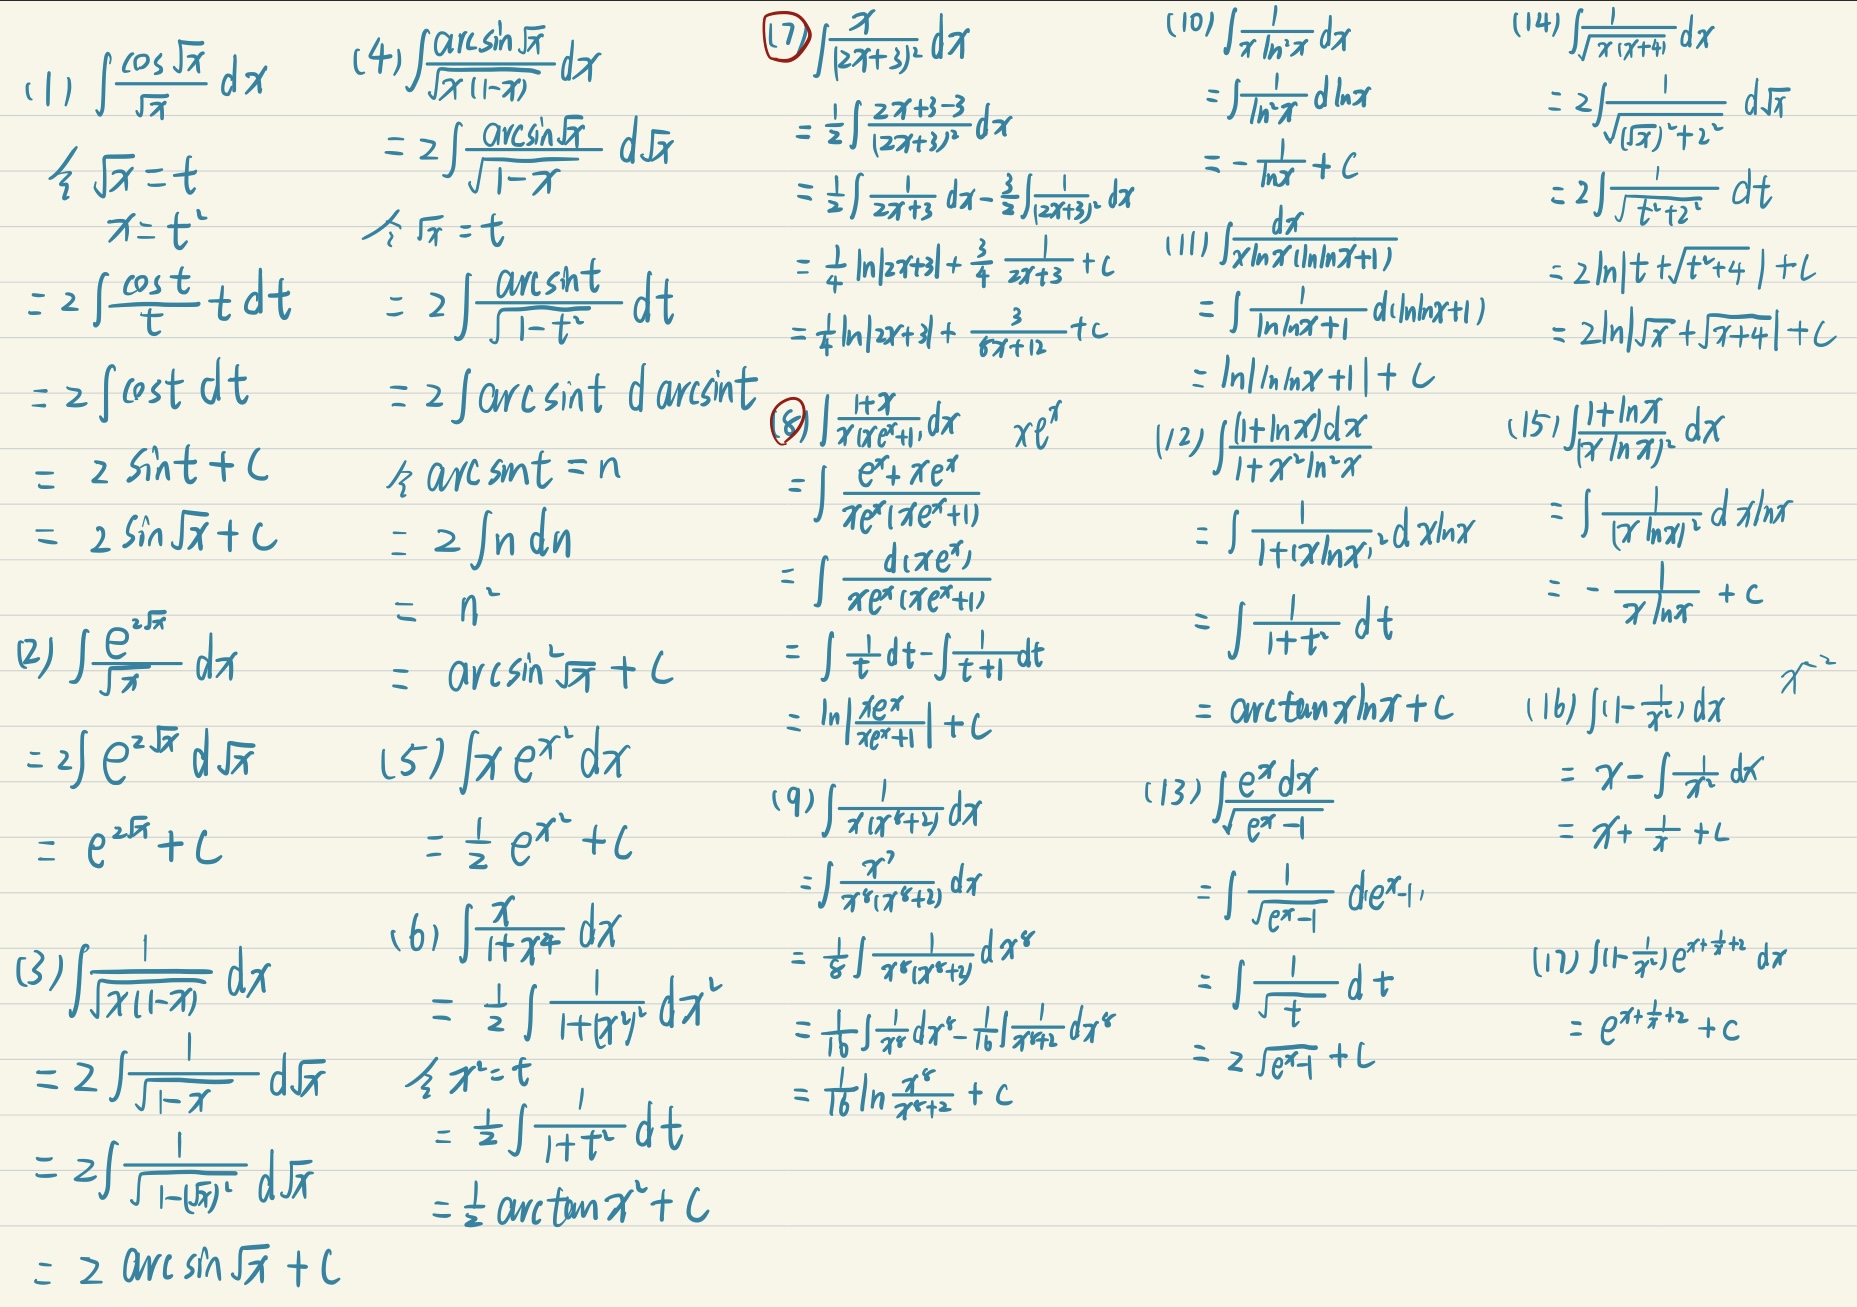 (1) ∫ cos√x / √x dx
令 √x = t
x = t²
= 2 ∫ cost / t · t dt
= 2 ∫ cost dt
= 2 sint + C
= 2 sin√x + C
(2) ∫ e^(2√x) / √x dx
= 2∫ e^(2√x) d√x
= e^(2√x) + C
(3) ∫ 1 / √(x(1-x)) dx
= 2 ∫ 1 / √(1-x) d√x
= 2 ∫ 1 / √(1-(√x)²) d√x
= 2 arcsin√x + C
(4) ∫ arcsin√x / √(x(1-x)) dx
= 2 ∫ arcsin√x / √(1-x) d√x
令 √x = t
= 2 ∫ arcsint / √(1-t²) dt
= 2 ∫ arcsint d arcsint
令 arcsint = n
= 2 ∫ n dn
= n²
= arcsin²√x + C
(5) ∫ x e^(x²) dx
= 1/2 e^(x²) + C
(6) ∫ x / (1+x⁴) dx
= 1/2 ∫ 1 / (1+(x²)²) dx²
令 x² = t
= 1/2 ∫ 1 / (1+t²) dt
= 1/2 arctan x² + C
(7) ∫ x / (2x+3)² dx
= 1/2 ∫ (2x+3-3) / (2x+3)² dx
= 1/2 ∫ 1 / (2x+3) dx - 3/2 ∫ 1 / (2x+3)² dx
= 1/4 ln|2x+3| + 3/4 1/(2x+3) + C
= 1/4 ln|2x+3| + 3/(8x+12) + C
(8) ∫ (1+x) / (x(xe^x+1)) dx xe^x
= ∫ (e^x + xe^x) / (xe^x(xe^x+1))
= ∫ d(xe^x) / (xe^x(xe^x+1))
= ∫ 1/t dt - ∫ 1/(t+1) dt
= ln|xe^x / (xe^x+1)| + C
(9) ∫ 1 / (x(x⁸+2)) dx
= ∫ x⁷ / (x⁸(x⁸+2)) dx
= 1/8 ∫ 1 / (x⁸(x⁸+2)) dx⁸
= 1/16 ∫ 1/x⁸ dx⁸ - 1/16 ∫ 1/(x⁸+2) dx⁸
= 1/16 ln x⁸/(x⁸+2) + C
(10) ∫ 1 / (x ln²x) dx
= ∫ 1 / ln²x d lnx
= - 1/lnx + C
(11) ∫ dx / (xlnx(lnlnx+1))
= ∫ 1 / (lnlnx+1) d(lnlnx+1)
= ln|lnlnx+1| + C
(12) ∫ (1+lnx)dx / (1+x²ln²x)
= ∫ 1 / (1+(xlnx)²) d xlnx
= ∫ 1 / (1+t²) dt
= arctan xlnx + C
(13) ∫ e^x dx / √(e^x-1)
= ∫ 1 / √(e^x-1) d(e^x-1)
= ∫ 1 / √t dt
= 2 √(e^x-1) + C
(14) ∫ 1 / √(x(x+4)) dx
= 2∫ 1 / √((√x)²+2²) d√x
= 2∫ 1 / √(t²+2²) dt
= 2 ln|t+√(t²+4)| + C
= 2ln|√x+√(x+4)| + C
(15) ∫ (1+lnx) / (x lnx)² dx
= ∫ 1 / (x lnx)² d xlnx
= - 1/(x lnx) + C
x^(-2)
(16) ∫ (1 - 1/x²) dx
= x - ∫ 1/x² dx
= x + 1/x + C
(17) ∫ (1 - 1/x²) e^(x+1/x+2) dx
= e^(x+1/x+2) + C